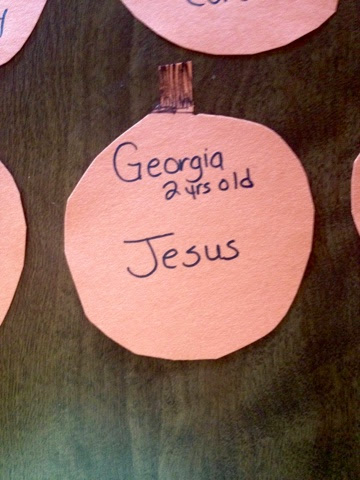 Georgia
2 yrs old
Jesus